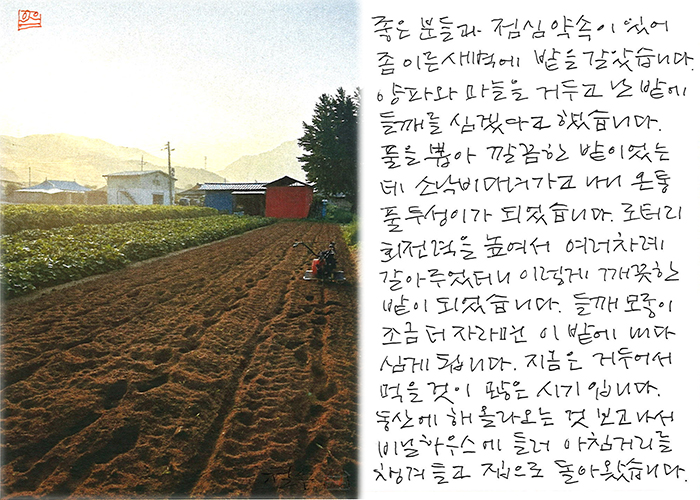 좋은 분들과 점심약속이 있어
좀 이른새벽에 밭을갈았습니다.
양파와 마늘을 거두고 난 밭에
들깨를 심겠다고 했습니다.
풀을 뽑아 깔끔한 밭이었는
데 소낙비다녀가고 나니 온통
풀투성이가 되었습니다. 로터리
회전력을 높여서 여러차례
갈아주었더니 이렇게 깨끗한
밭이 되었습니다. 들깨 모종이
조금 더 자라면 이 밭에 내다
심게 됩니다. 지금은 거두어서
먹을 것이 많은 시기입니다.
동산에 해 올라오는 것 보고나서
비닐하우스에 들러 아침거리를
챙겨들고 집으로 돌아왔습니다.